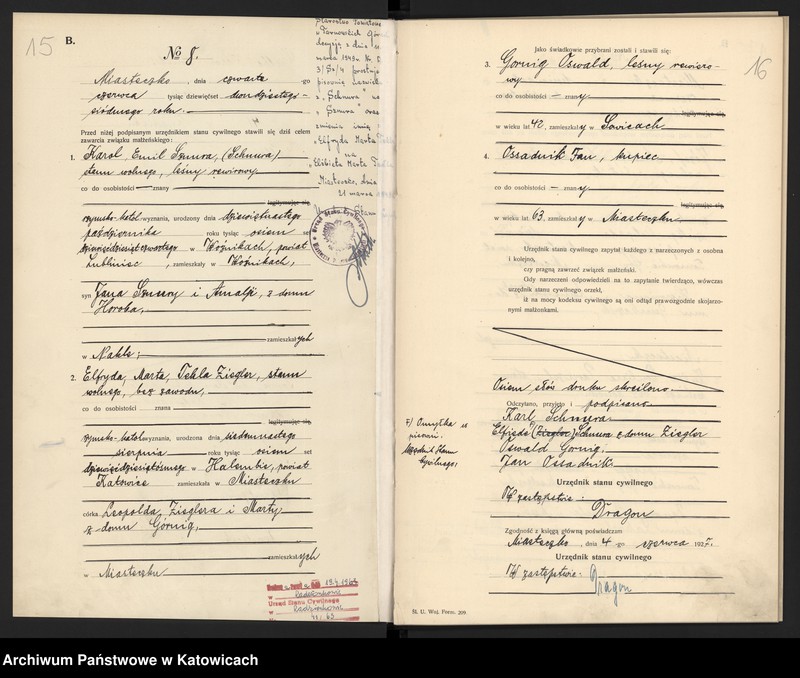 15
B.
No 8.
Miasteczko, dnia czwarte go
czerwca tysiąc dziewięćset dwudziestego
siódmego roku.
Przed niżej podpisanym urzędnikiem stanu cywilnego stawili się dziś celem
zawarcia związku małżeńskiego:
1. Karol, Emil Sznura, (Schnura)
stanu wolnego, leśny rewirowy
co do osobistości — znany
legitymując się
rzymsko-katol. wyznania, urodzony dnia dziewiętnastego
października roku tysiąc osiem set
dziewięćdziesiątczwartego w Woźnikach, powiat
Lubliniec, zamieszkały w Woźnikach,
syn Jana Sznury i Amalji, z domu
Horoba,
zamieszkałych
w Nakle;
2. Elfryda, Marta, Tekla Ziegler, stanu
wolnego, bez zawodu,
co do osobistości znana
legitymując się
rzymsko-katol. wyznania, urodzona dnia siedemnastego
sierpnia roku tysiąc osiem set
dziewięćdziesiątósmego w Halembie, powiat
Katowice zamieszkała w Miasteczku
córka Leopolda Zieglera i Marty
z domu Górnig,
zamieszkałych
w Miasteczku
Starostwo Powiatowe
w Tarnowskich Górach
decyzją z dnia
marca 1949r. Nr
prostuje
pisownię nazwiska
z „Schnura” na
„Sznura” oraz
zmienia imię
„Elfryda Marta
na
„Elżbieta Marta
Miasteczko, dnia
21 marca
Urząd Stanu Cywilnego
19.4.1962
Urząd Stanu Cywilnego
w Radzionkowie
16
Jako świadkowie przybrani zostali i stawili się:
3. Górnig Oswald, leśny rewiro-
wy
co do osobistości — znany
legitymując się
w wieku lat 42, zamieszkały w Sowicach
4. Ossadnik Jan, kupiec
co do osobistości — znany
legitymując się
w wieku lat 63, zamieszkały w Miasteczku
Urzędnik stanu cywilnego zapytał każdego z narzeczonych z osobna
i kolejno,
czy pragną zawrzeć związek małżeński.
Gdy narzeczeni odpowiedzieli na to zapytanie twierdząco, wówczas
urzędnik stanu cywilnego orzekł,
iż na mocy kodeksu cywilnego są oni odtąd prawozgodnie skojarzo-
nymi małżonkami.
Osiem słów druku skreślono
Odczytano, przyjęto i podpisano
Karl Schnura
Elfriede (Ziegler) Schnura z domu Ziegler
Oswald Górnig,
Jan Ossadnik
Omyłka w
pisowni.
Urzędnik Stanu
Cywilnego:
Urzędnik stanu cywilnego
W zastępstwie:
Dragon
Zgodność z księgą główną poświadczam
Miasteczko, dnia 4 go czerwca 1927.
Urzędnik stanu cywilnego
W zastępstwie: Dragon
Śl. U. Woj. Form. 209.
Archiwum Państwowe w Katowicach